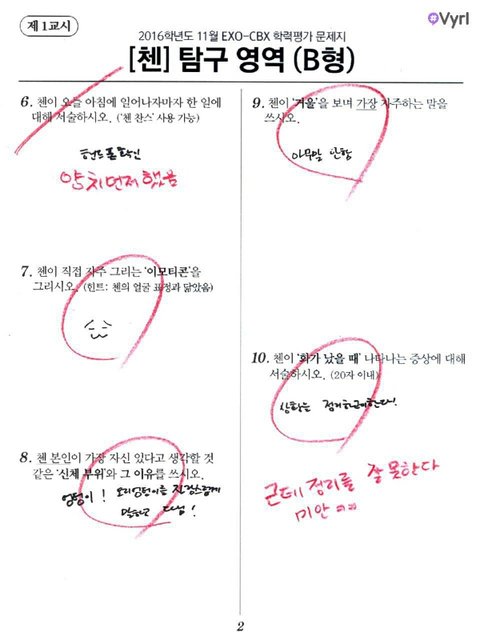 제 1교시
Vyrl
2016학년도 11월 EXO-CBX 학력평가 문제지
[첸] 탐구 영역 (B형)
6. 첸이 오늘 아침에 일어나자마자 한 일에
대해 서술하시오. ('첸 찬스' 사용 가능)
핸드폰 확인
양치먼저 했음
7. 첸이 직접 자주 그리는 '이모티콘'을
그리시오. (힌트: 첸의 얼굴 표정과 닮았음)
8. 첸 본인이 가장 자신 있다고 생각할 것
같은 '신체 부위'와 그 이유를 쓰시오.
엉덩이! 오리엉덩이를 자랑스럽게
말하고 다님!
9. 첸이 '거울'을 보며 가장 자주하는 말을
쓰시오.
아무말 안함
10. 첸이 '화가 났을 때' 나타나는 증상에 대해
서술하시오. (20자 이내)
상황을
근데 정리를 잘 못한다
미안 ㅋㅋ
2